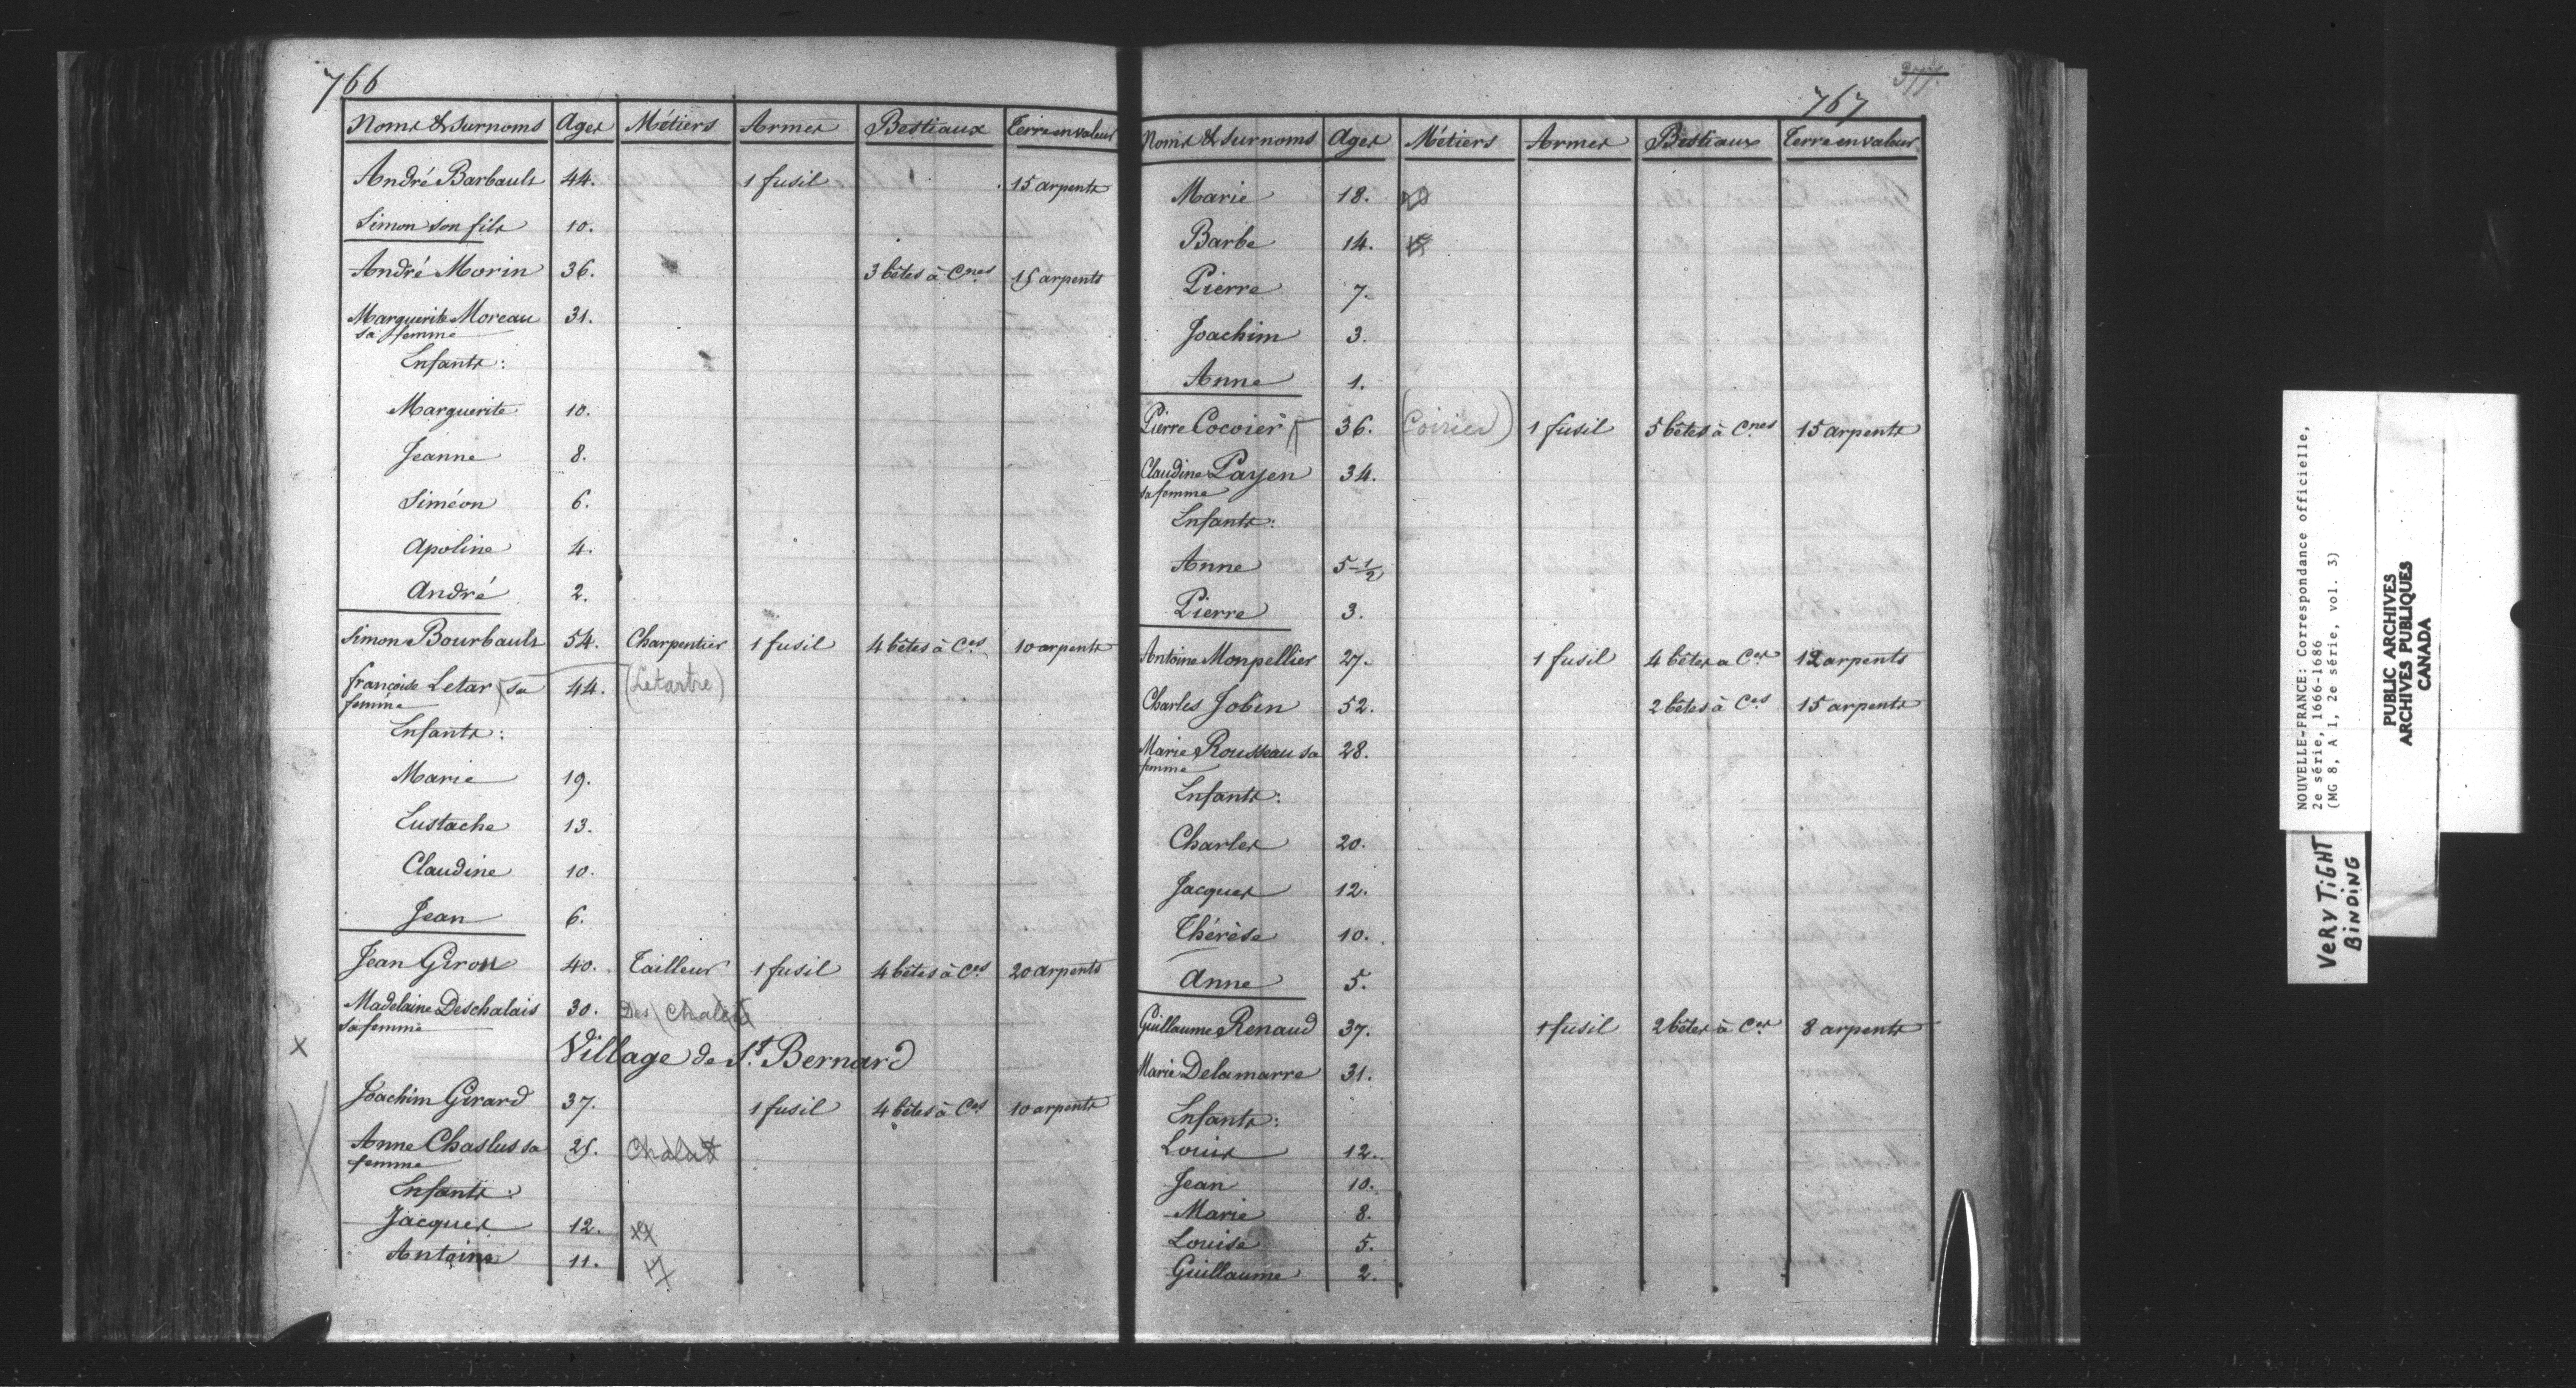 766
Noms & surnoms Ages Métiers Armes Bestiaux Terre en valeur
André Barbault 44. 1 fusil 15 arpents
Simon son fils 10.
André Morin 36. 3 bêtes à Cnes 15 arpents
Marguerite Moreau 31.
sa femme
Enfants:
Marguerite 10.
Jeanne 8.
Siméon 6.
Apoline 4.
André 2.
Simon Bourbault 54. Charpentier 1 fusil 4 bêtes à Ces 10 arpents
françoise Letar sa 44. (Letartre)
femme
Enfants:
Marie 19.
Eustache 13.
Claudine 10.
Jean 6.
Jean Girou 40. Tailleur 1 fusil 4 bêtes à Ces 20 arpents
Madelaine Deschalais 30. Des Chalets
sa femme
x Village de St. Bernard
Joachim Girard 37. 1 fusil 4 bêtes à Ces 10 arpents
Anne Chaslus sa 25. Chalut
femme
Enfants:
Jacques 12.
Antoine 11.
377.
767
Noms & surnoms Ages Métiers Armes Bestiaux Terre en valeur
Marie 18.
Barbe 14.
Pierre 7.
Joachim 3.
Anne 1.
Pierre Cocoier 36. (Poirier) 1 fusil 5 bêtes à Cnes 15 arpents
Claudine Payen 34.
sa femme
Enfants:
Anne 5 1/2
Pierre 3.
Antoine Monpellier 27. 1 fusil 4 bêtes a Ces 12 arpents
Charles Jobin 52. 2 bêtes à Ces 15 arpents
Marie Rousseau sa 28.
femme
Enfants:
Charles 20.
Jacques 12.
Thérèse 10.
Anne 5.
Guillaume Renaud 37. 1 fusil 2 bêtes à Ces 8 arpents
Marie Delamarre 31.
Enfants:
Louis 12.
Jean 10.
Marie 8.
Louise 5.
Guillaume 2.
NOUVELLE-FRANCE: Correspondance officielle,
2e série, 1666-1686
(MG 8, A 1, 2e série, vol. 3)
VERY TIGHT
BINDING
PUBLIC ARCHIVES
ARCHIVES PUBLIQUES
CANADA